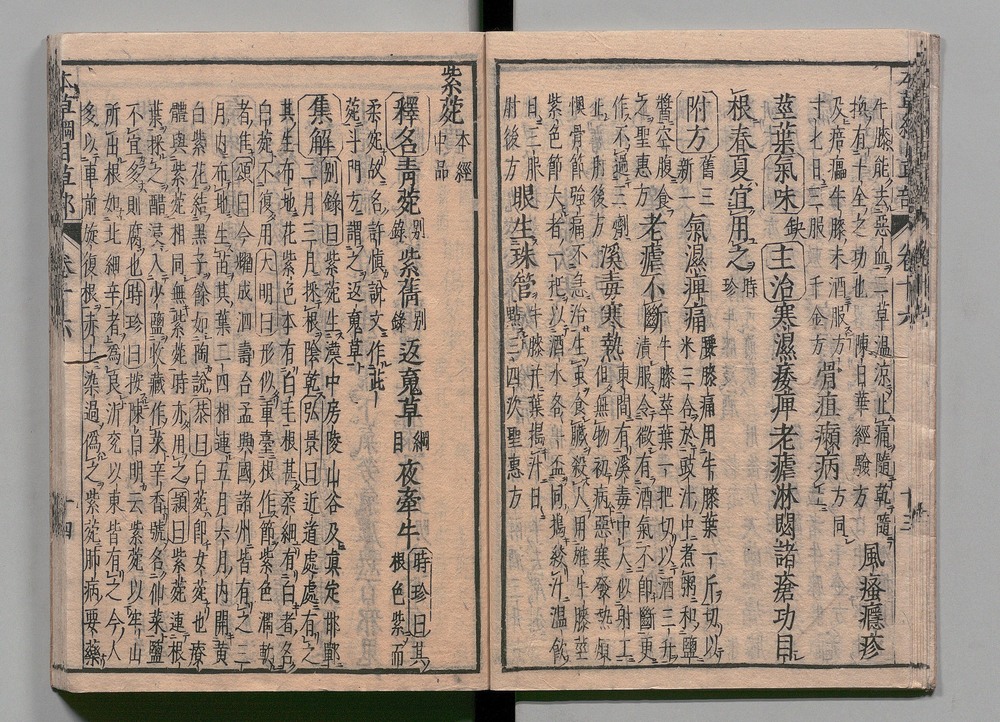 牛膝能去惡血二草溫涼止痛隨乾隨
換有十全之功也 陳日華經驗方 風瘙癮疹
及㾦㿔牛膝末酒服方 同
寸七日三服 千金方 骨疽癩病
莖葉氣味缺主治寒濕痿痺老瘧淋閟諸瘡功同
根春夏宜用之 時珍
附方 舊三新一 氣濕痺痛 腰膝痛用牛膝葉一斤切以
米三合於豉汁中煮粥和鹽
醬空腹食
之聖惠方 老瘧不斷 牛膝莖葉一把切以酒三升
漬服令微有酒氣不即斷更
作不過三劑 溪毒寒熱 東間有溪毒中人似射工
但無物初病惡寒發熱煩
懊骨節強痛不急治生蟲食臟殺人用雄牛膝莖
紫色節大者一把以酒水各一盃同搗絞汁溫飲
日三服
肘後方 眼生珠管 牛膝并葉搗汁日
點三四次聖惠方
紫菀 本經中品
釋名青菀 別錄 紫蒨 別錄 返䰟草 綱目 夜牽牛 時珍曰其
根色紫而
柔宛故名許慎說文作茈
菀斗門方謂之返䰟草
集解 別錄曰紫菀生漢中房陵山谷及真定邯鄲
二月三月採根陰乾弘景曰近道處處有之
其生布地花紫色本有白毛根甚柔細有白者名
白菀不復用大明曰形似重臺根作節紫色潤軟
者佳頌曰今耀成泗壽台孟興國諸州皆有之三
月內布地生苗其葉二四相連五月六月內開黃
白紫花結黑子餘如陶說恭曰白菀即女菀也療
體與紫菀相同無紫菀時亦用之穎曰紫菀連根
葉採之醋浸入少鹽收藏作菜辛香號名仙菜鹽
不宜多則腐時珍曰按陳自明云紫菀以牢山
所出根如北細辛者為良沂兗以東皆有之今人
多以車前旋復根赤土染過偽之紫菀肺病要藥
本草綱目草部 卷十六 十四
卷十六 十三